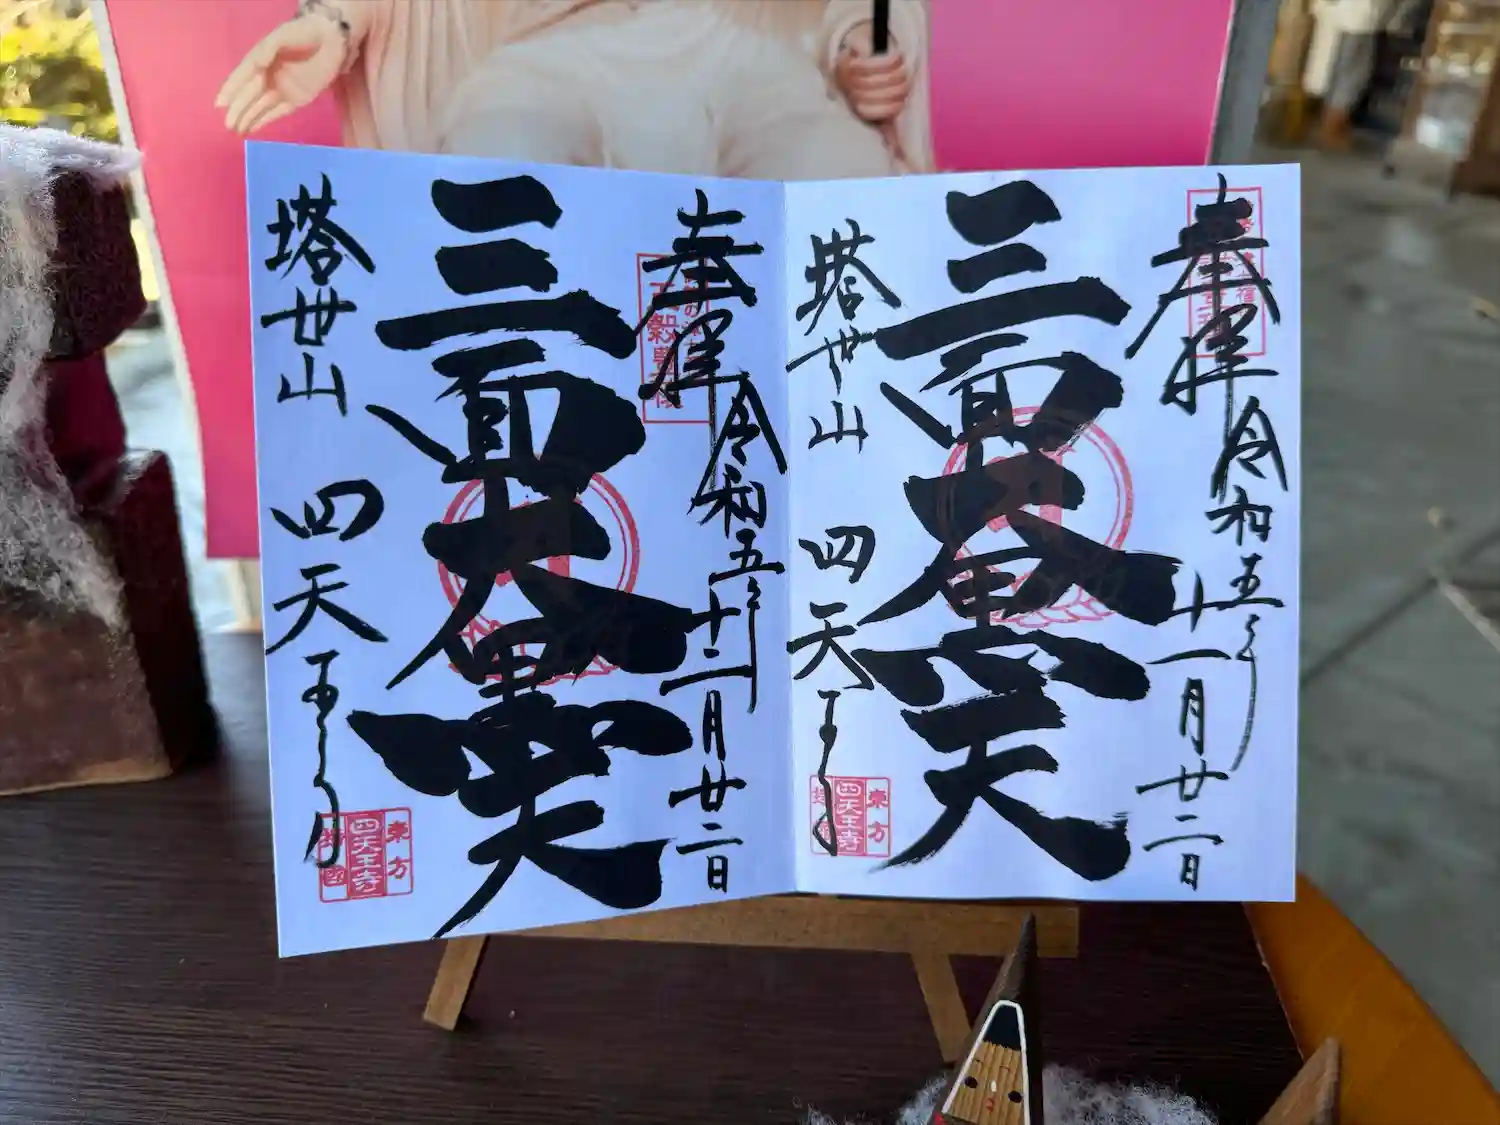 奉拝
令和五年十一月廿二日
三面大黒天
塔世山 四天王寺
東方
四天王寺
奉拝
令和五年十二月廿二日
三面大黒天
塔世山 四天王寺
東方
四天王寺